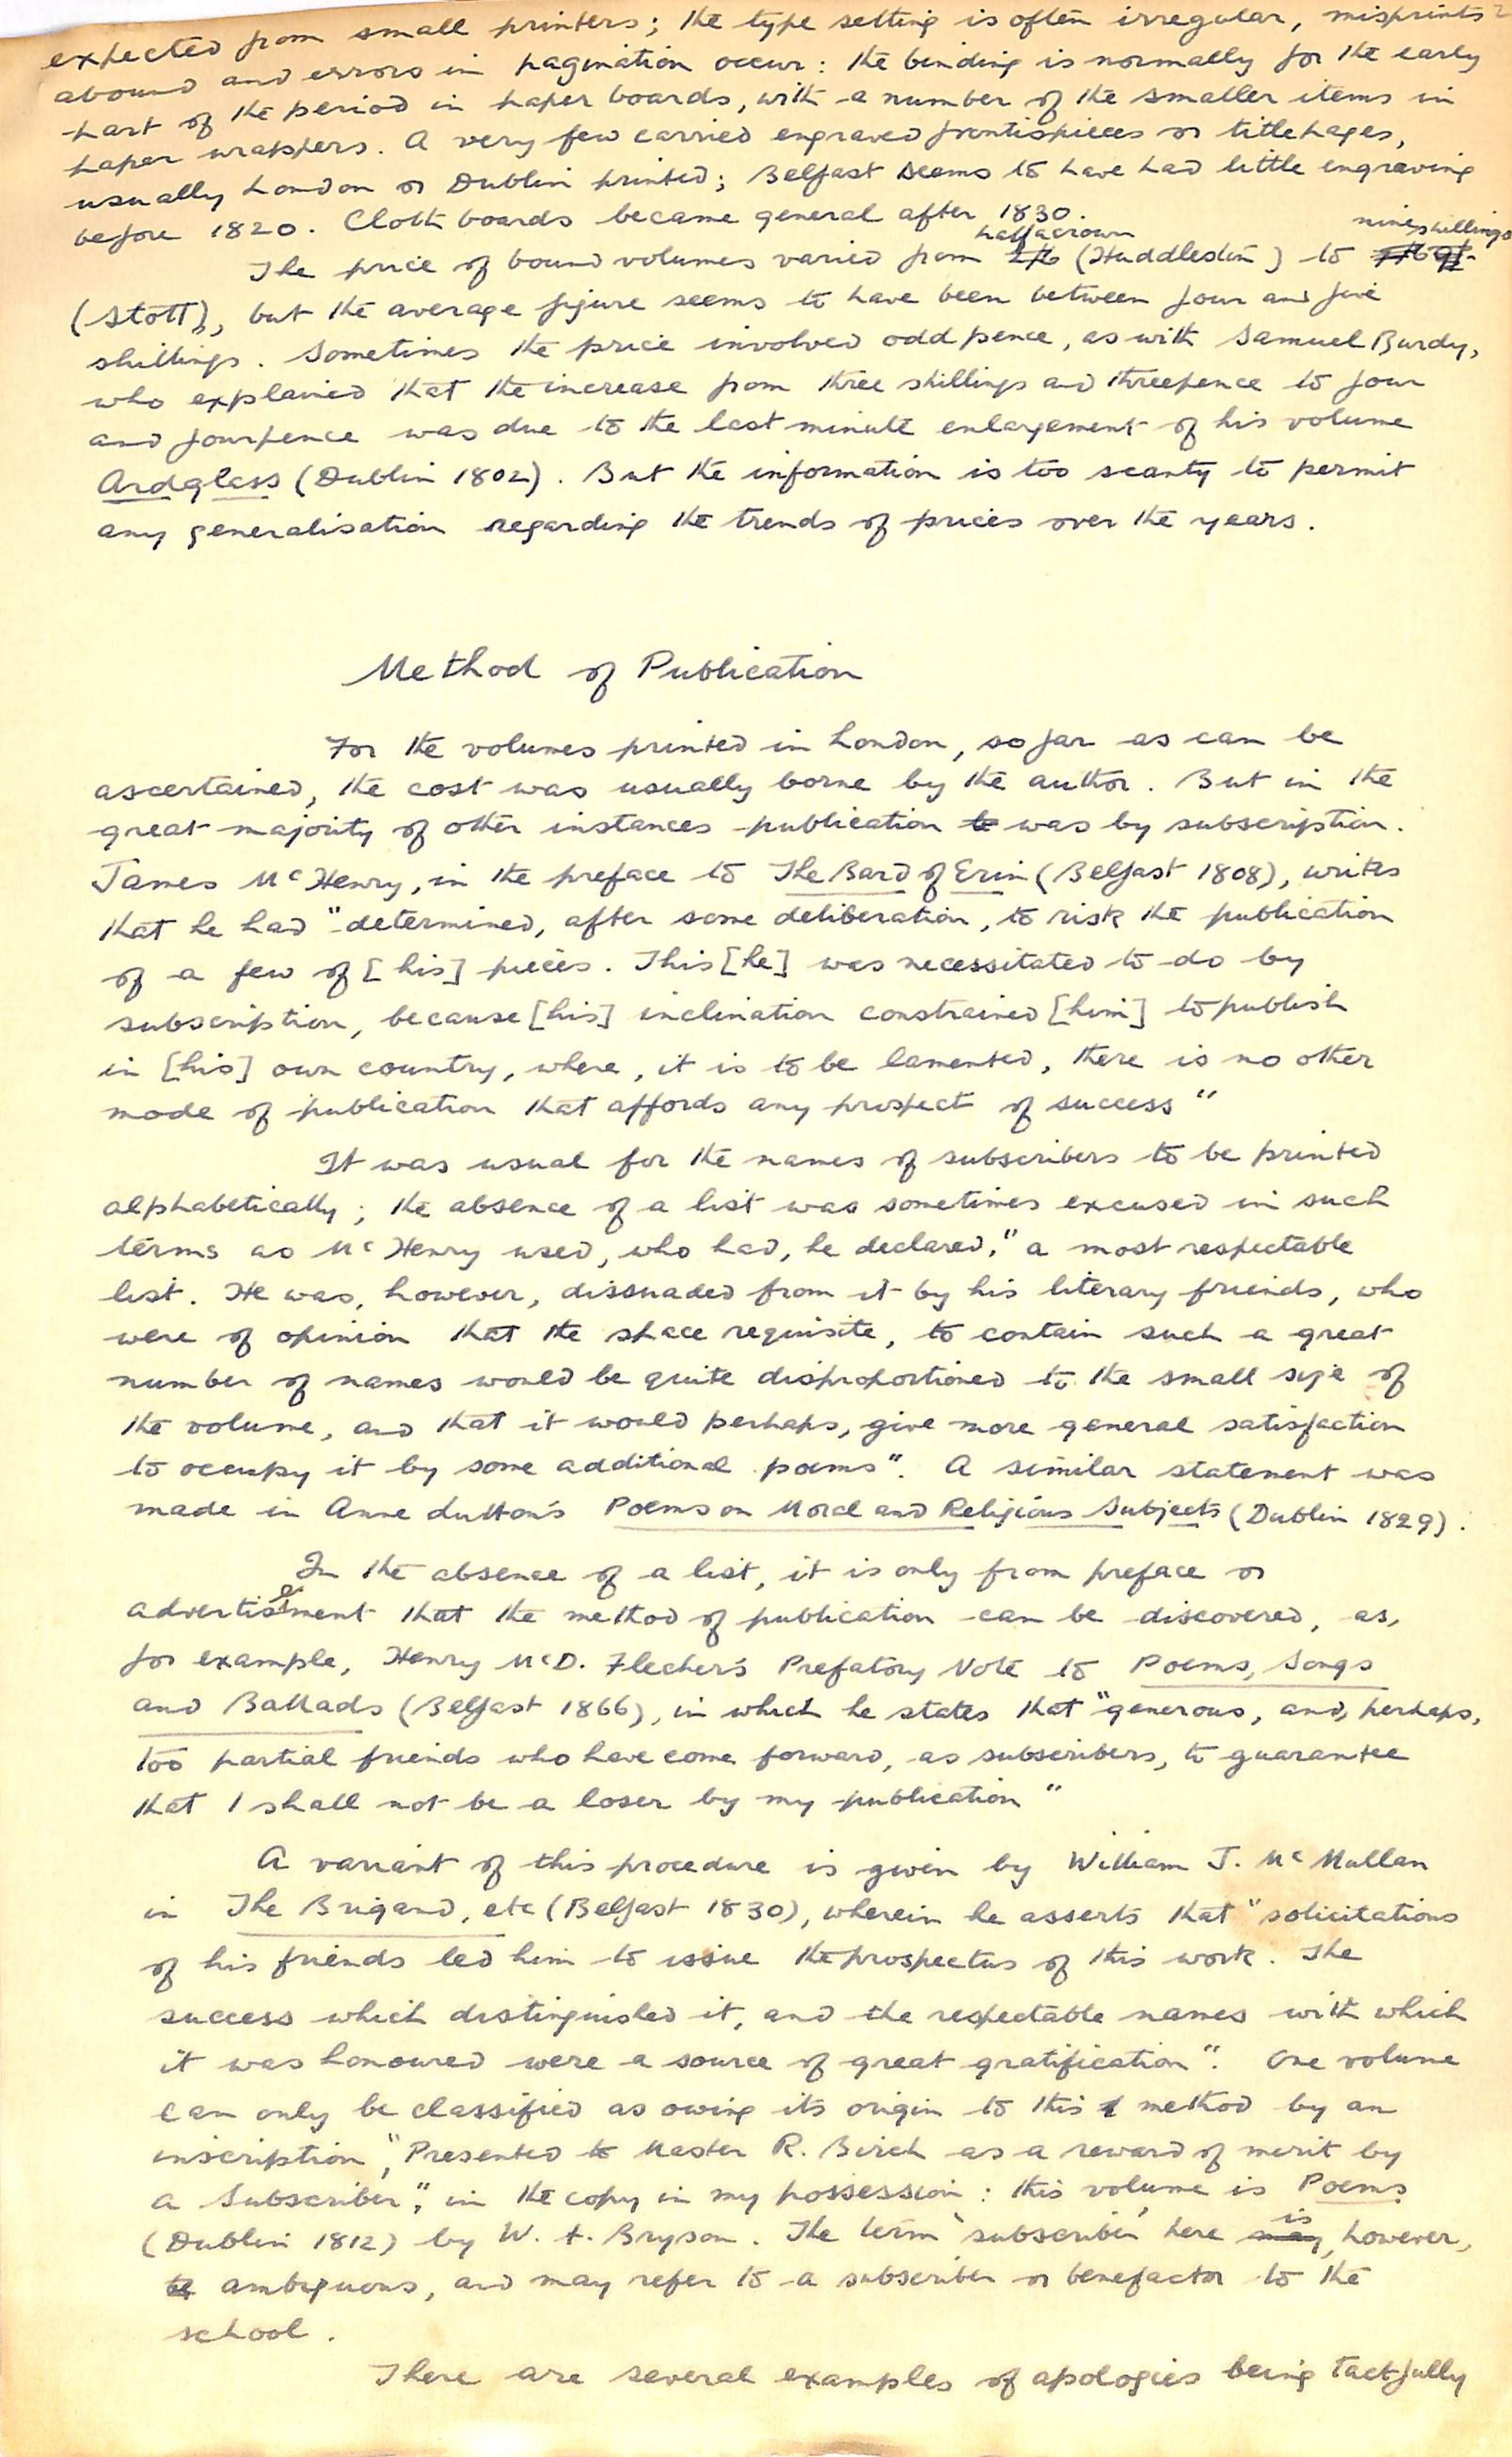 expected from small printers; the type setting is often irregular, misprints
abound and errors in pagination occur: the binding is normally for the early
part of the period in paper boards, with a number of the smaller items in
paper wrappers. A very few carried engraved frontispieces or titlepages,
usually London or Dublin printed; Belfast seems to have had little engraving
before 1820. Cloth boards became general after 1830.
halfacrown nine shillings
The price of bound volumes varied from 2/6 (Huddleston) to
(Stott), but the average figure seems to have been between four and five
shillings. Sometimes the price involved odd pence, as with Samuel Burdy,
who explained that the increase from three shillings and threepence to four
and fourpence was due to the last minute enlargement of his volume
Ardglass (Dublin 1802). But the information is too scanty to permit
any generalisation regarding the trends of prices over the years.
Method of Publication
For the volumes printed in London, so far as can be
ascertained, the cost was usually borne by the author. But in the
great majority of other instances publication was by subscription.
James McHenry, in the preface to The Bard of Erin (Belfast 1808), writes
that he had "determined, after some deliberation, to risk the publication
of a few of [his] pieces. This [he] was necessitated to do by
subscription, because [his] inclination constrained [him] to publish
in [his] own country, where, it is to be lamented, there is no other
mode of publication that affords any prospect of success"
It was usual for the names of subscribers to be printed
alphabetically; the absence of a list was sometimes excused in such
terms as McHenry used, who had, he declared, "a most respectable
list. He was, however, dissuaded from it by his literary friends, who
were of opinion that the space requisite, to contain such a great
number of names would be quite disproportioned to the small size of
the volume, and that it would perhaps, give more general satisfaction
to occupy it by some additional poems". A similar statement was
made in Anne Lutton's Poems on Moral and Religious Subjects (Dublin 1829).
In the absence of a list, it is only from preface or
advertisement that the method of publication can be discovered, as,
for example, Henry McD. Flecher's Prefatory Note to Poems, Songs
and Ballads (Belfast 1866), in which he states that "generous, and, perhaps,
too partial friends who have come forward, as subscribers, to guarantee
that I shall not be a loser by my publication"
A variant of this procedure is given by William J. McMullan
in The Brigand, etc (Belfast 1830), wherein he asserts that "solicitations
of his friends led him to issue the prospectus of this work. The
success which distinguished it, and the respectable names with which
it was honoured were a source of great gratification". One volume
can only be classified as owing its origin to this method by an
inscription, "Presented to Master R. Birch as a reward of merit by
a Subscriber", in the copy in my possession: this volume is Poems
(Dublin 1812) by W. A. Bryson. The term 'subscriber' here is, however,
ambiguous, and may refer to a subscriber or benefactor to the
school.
There are several examples of apologies being tactfully